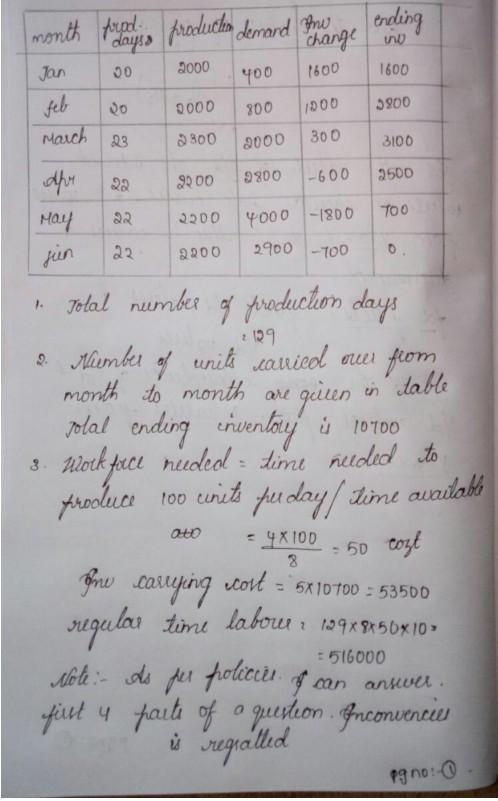 month prod. days production demand Inv change ending inv
Jan 20 2000 400 1600 1600
feb 20 2000 800 1200 2800
March 23 2300 2000 300 3100
Apr 22 2200 2800 -600 2500
May 22 2200 4000 -1800 700
jun 22 2200 2900 -700 0.
1. Total number of production days
= 129
2. Number of units carried over from
month to month are given in table
Total ending inventory is 10700
3. Workforce needed = time needed to
produce 100 units per day / time available
= 4×100 / 8 = 50 cozt
Inv carrying cost = 5×10700 = 53500
regular time labour = 129×8×50×10 =
= 516000
Note:- As per policies. I can answer.
first 4 parts of a question. Inconvencies
is regratted
pgno:-①